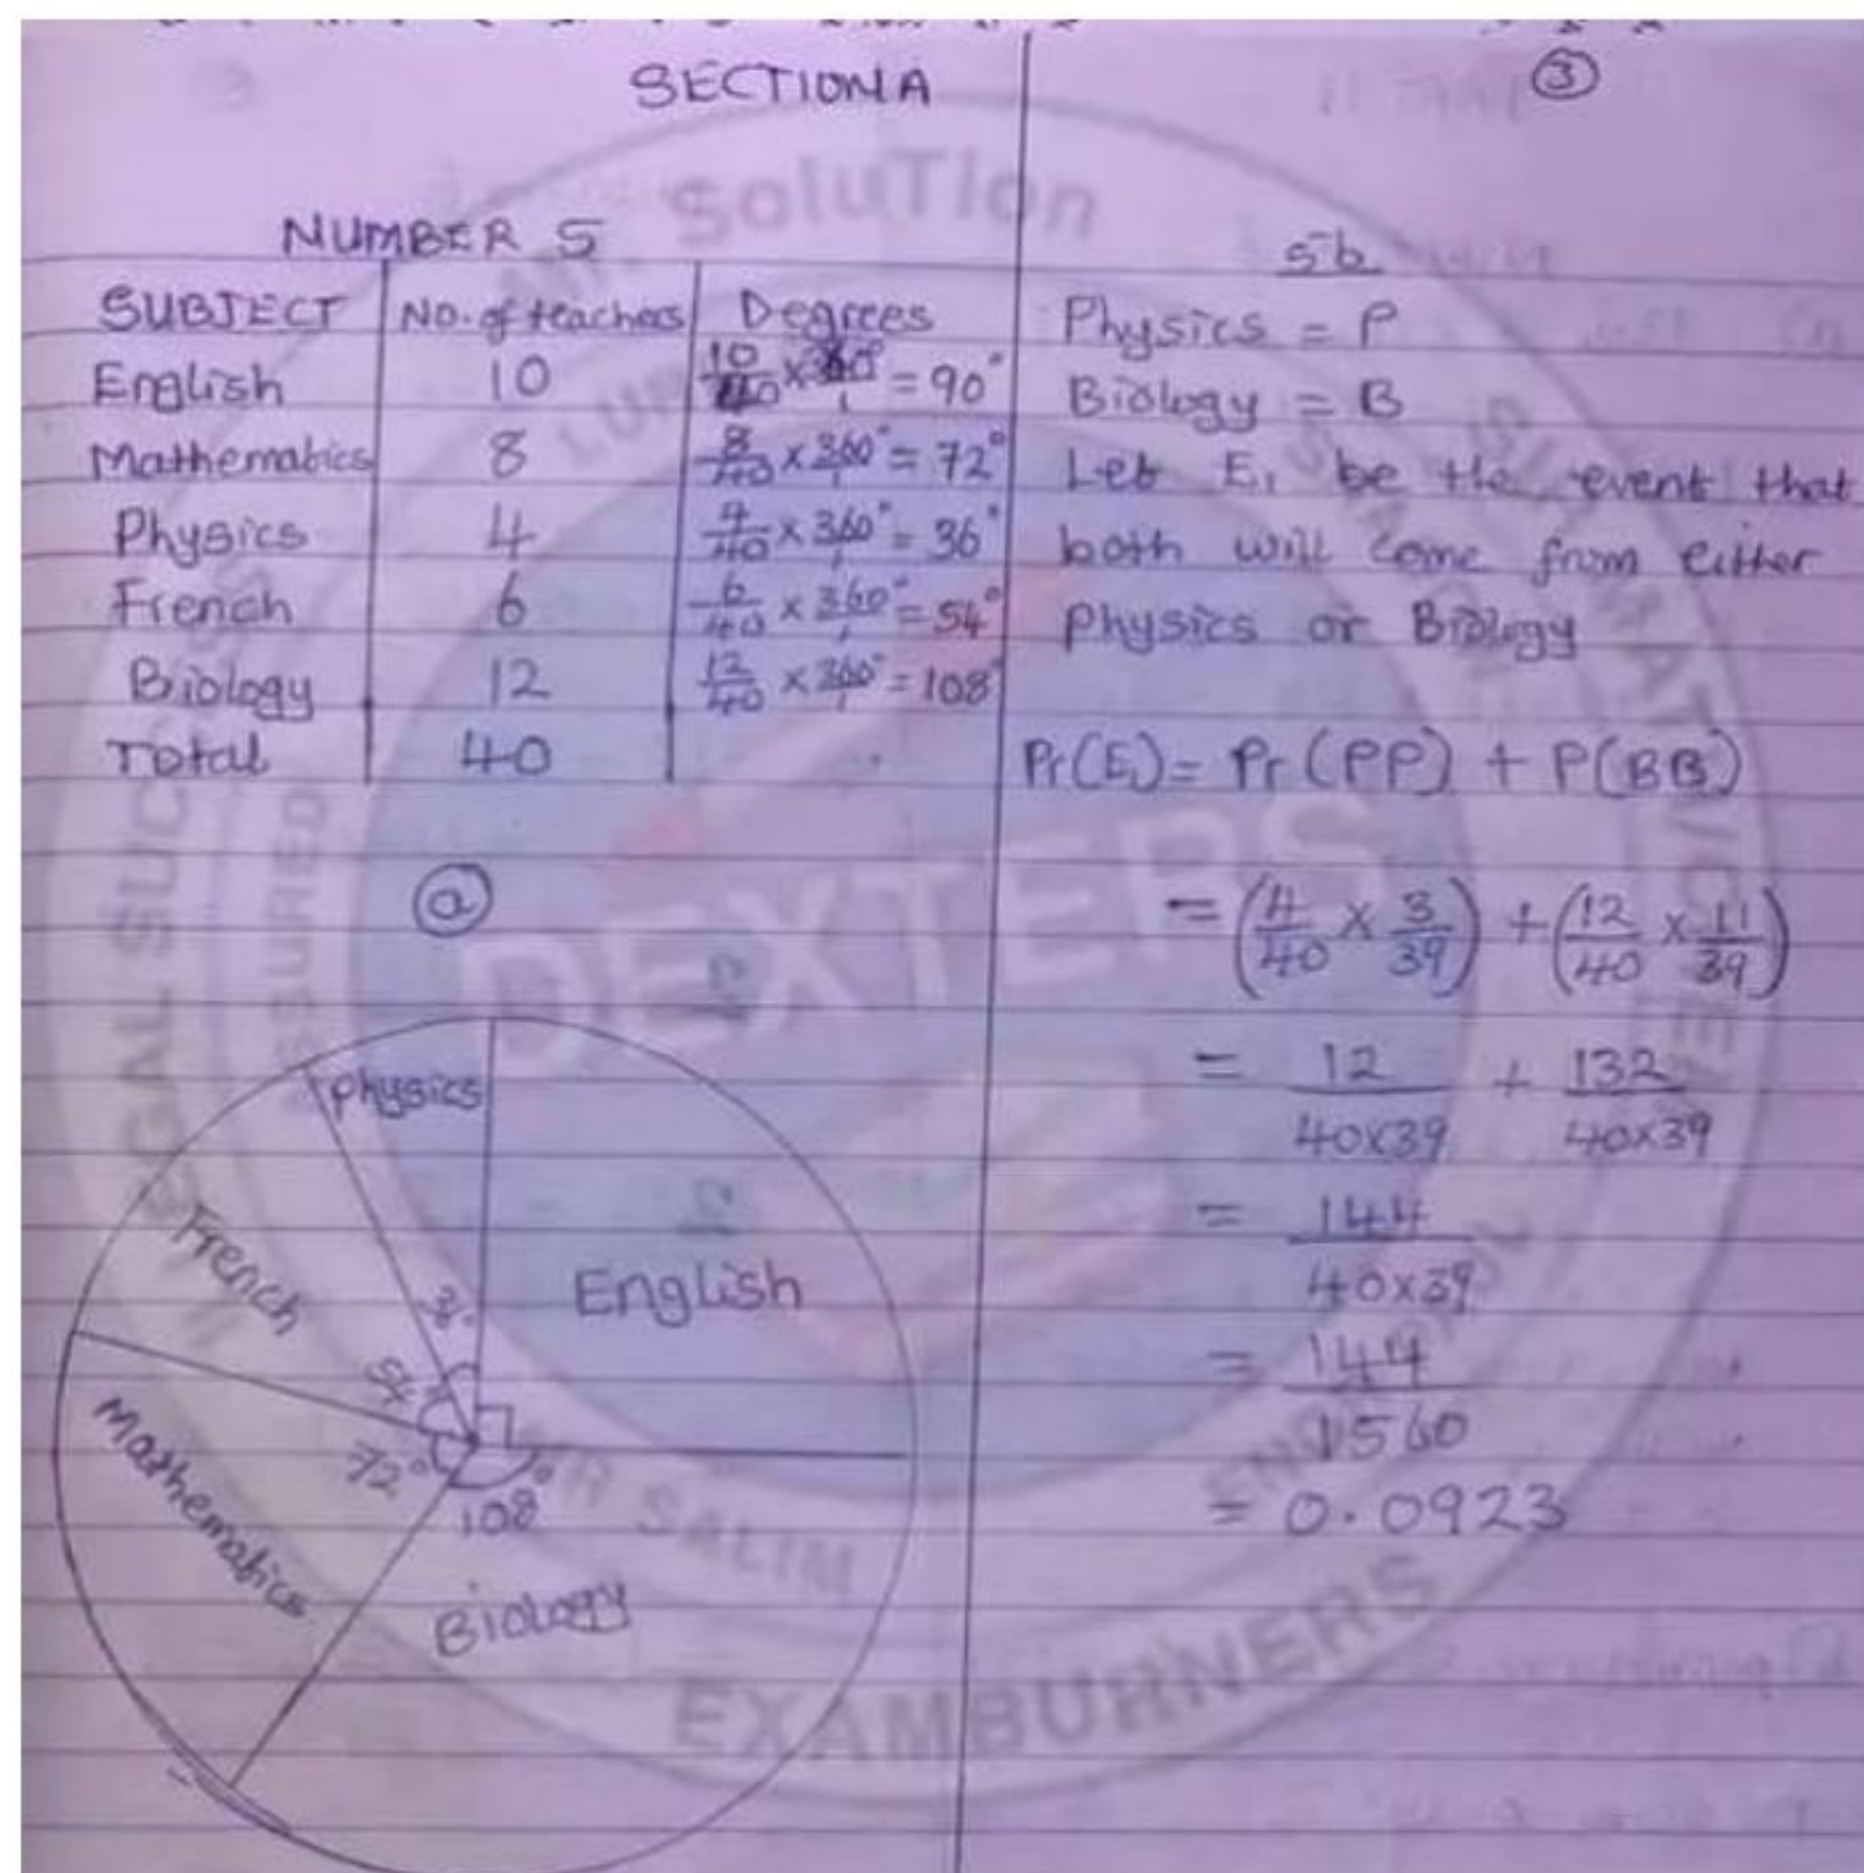 SECTION A
③
NUMBER 5
SUBJECT No. of teachers Degrees
English 10 10/40 × 360°/1 = 90°
Mathematics 8 8/40 × 360°/1 = 72°
Physics 4 4/40 × 360°/1 = 36°
French 6 6/40 × 360°/1 = 54°
Biology 12 12/40 × 360°/1 = 108°
Total 40
ⓐ
Physics
French
English
36°
54°
Mathematics
72°
108°
Biology
5b
Physics = P
Biology = B
Let E₁ be the event that
both will come from either
Physics or Biology
Pr(E₁) = Pr(PP) + P(BB)
= (4/40 × 3/39) + (12/40 × 11/39)
= 12/40×39 + 132/40×39
= 144/40×39
= 144/1560
= 0.0923
SoluTIon
DEXTERS
SALIM
EXAMBURNERS